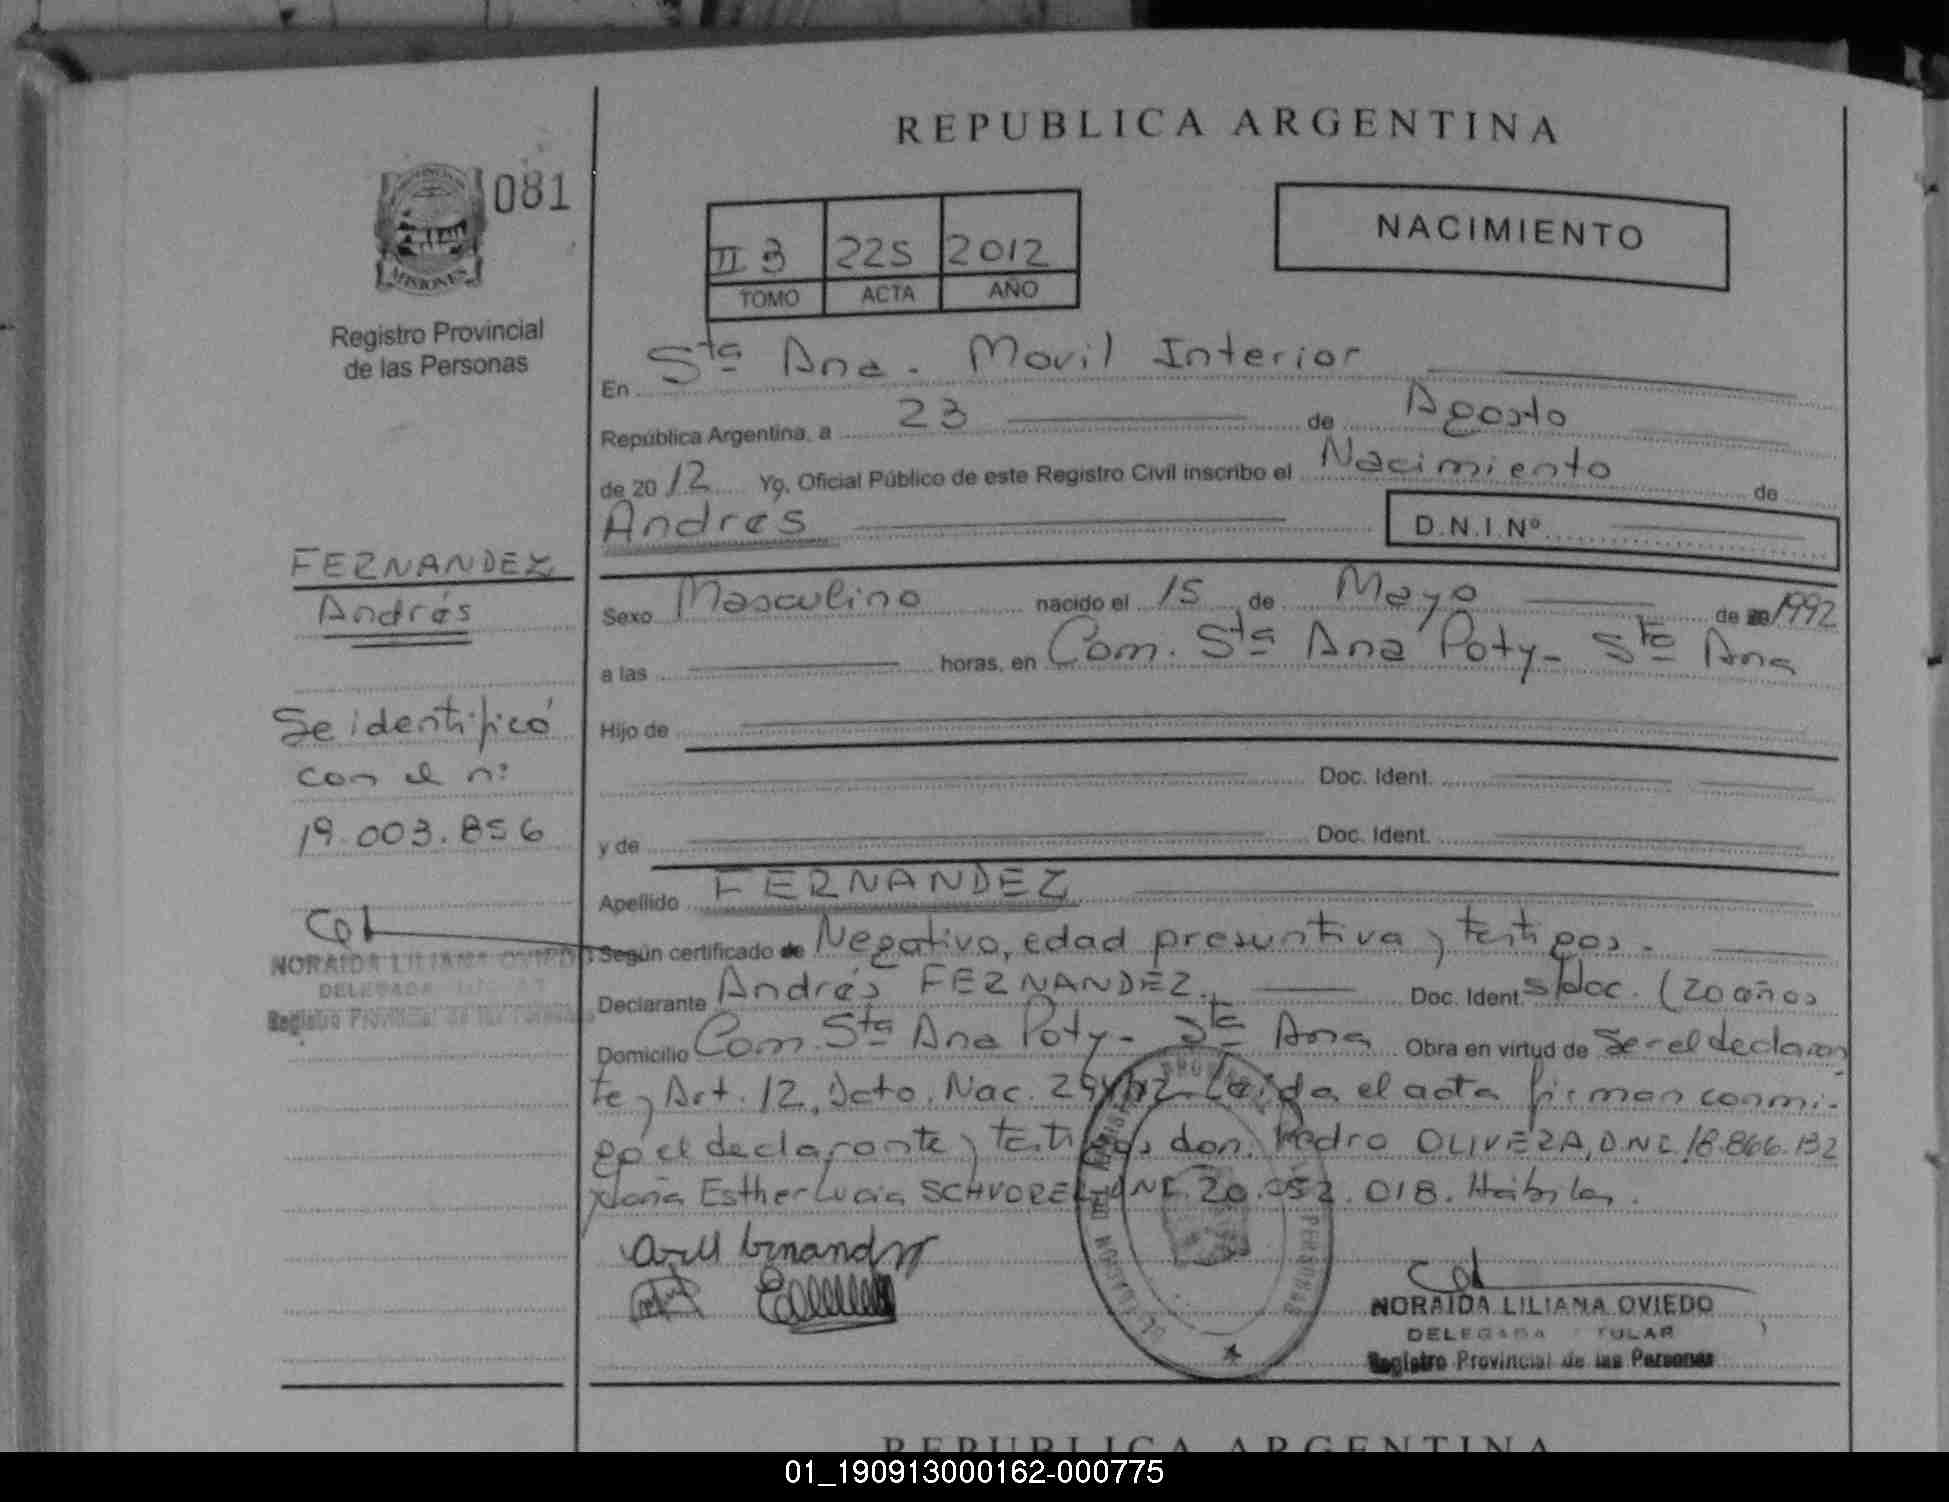 REPUBLICA ARGENTINA
081
MISIONES
Registro Provincial
de las Personas
NACIMIENTO
II 3 225 2012
TOMO ACTA AÑO
En Sta Ana. Movil Interior
República Argentina, a 23 de Agosto
de 2012 Yo, Oficial Público de este Registro Civil inscribo el Nacimiento de
Andrés D.N.I.Nº
FERNANDEZ
Andrés
Se identificó
con el nº
19.003.856
NORAIDA LILIANA OVIEDO
DELEGADA
Registro Provincial de las Personas
Sexo Masculino nacido el 15 de Mayo de 1992
a las horas, en Com. Sta Ana Poty - Sta Ana
Hijo de
Doc. Ident.
y de Doc. Ident.
Apellido FERNANDEZ
Según certificado de Negativo, edad presuntiva y testigos.
Declarante Andrés FERNANDEZ. Doc. Ident. s/doc. (20 años
Domicilio Com. Sta Ana Poty - Sta Ana Obra en virtud de Ser el declaran
te y Art. 12, Dcto. Nac. Leida el acta firman conmi-
go el declarante y testigos don: Pedro OLIVERA, DNI. 18.866.132
y doña Esther Lucia DNI. 20.052.018. Hábiles.
NORAIDA LILIANA OVIEDO
DELEGADA TITULAR
Registro Provincial de las Personas
REPUBLICA ARGENTINA
01_190913000162-000775